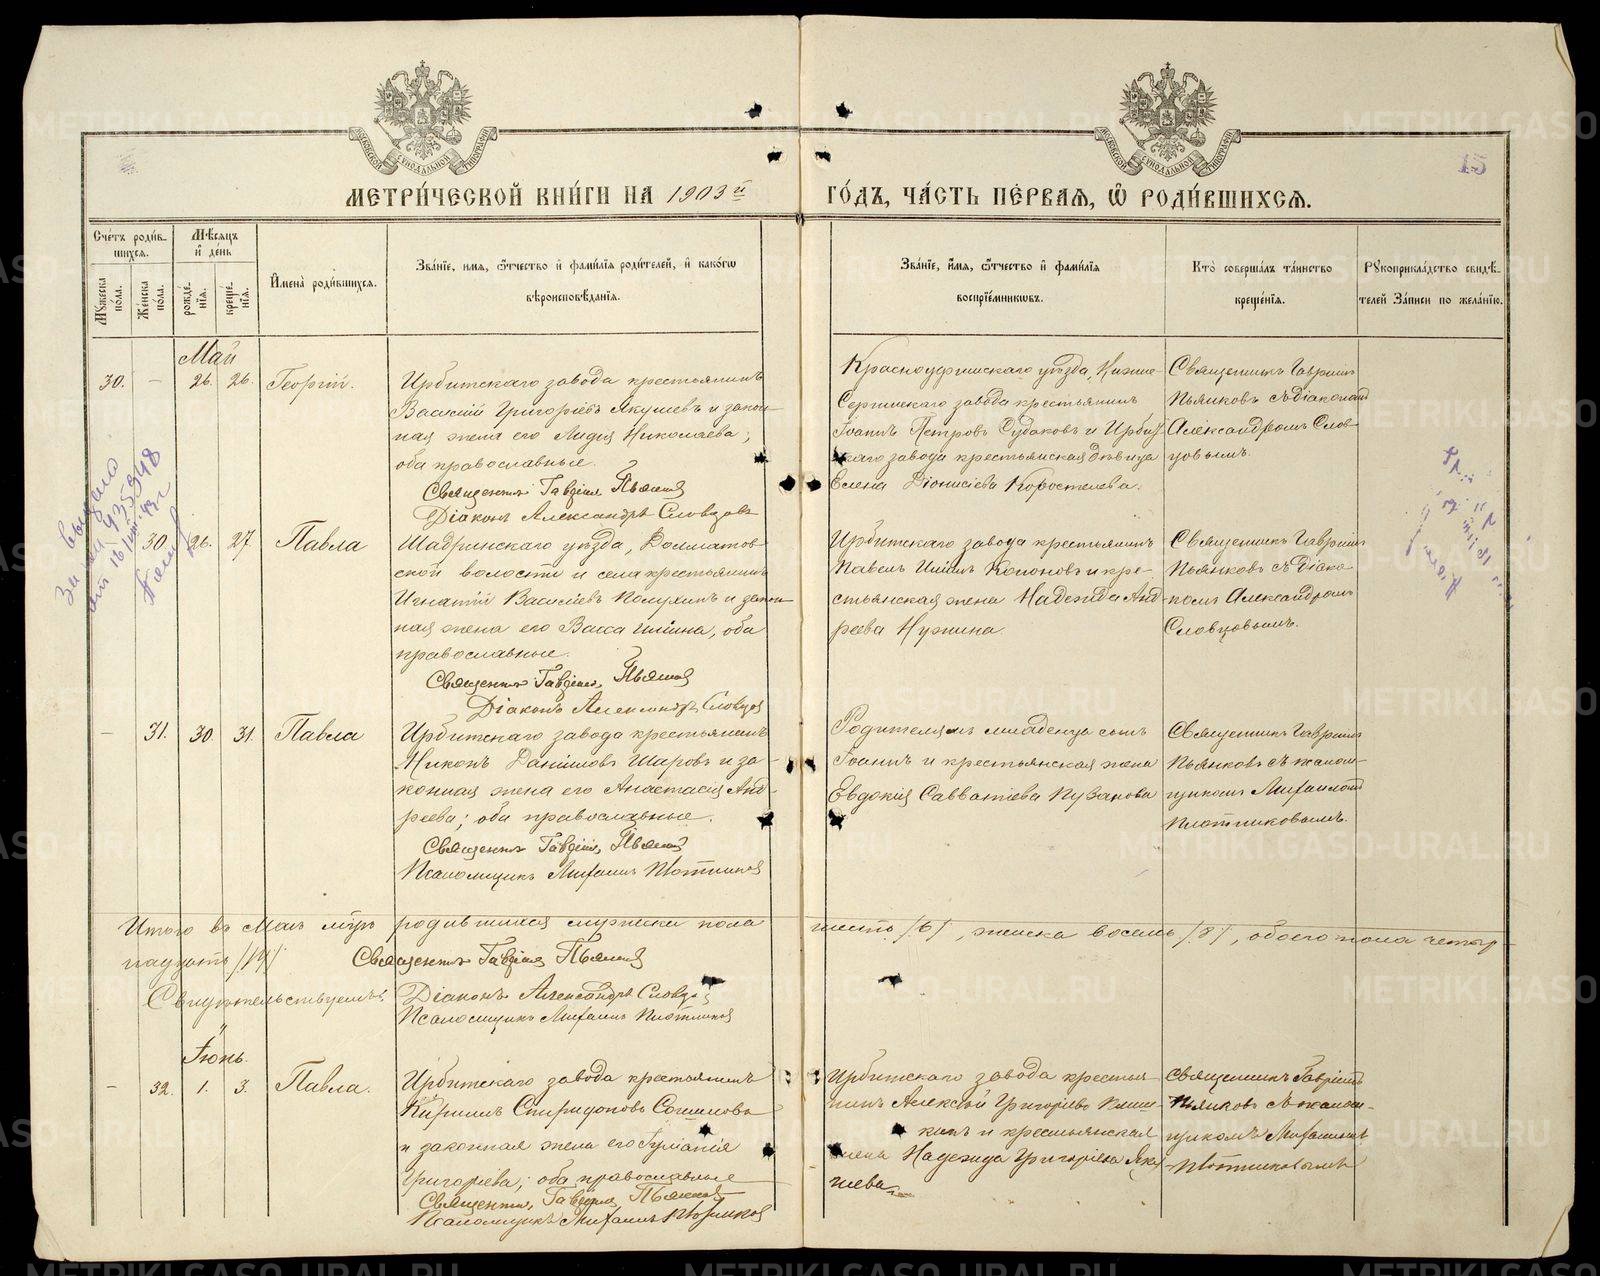 МЕТРИ́ЧЕСКОЙ КНИ́ГИ НА 1903й ГО́ДЪ, ЧА́СТЬ ПЕ́РВАЯ, Ѽ РОДИ́ВШИХСЯ.
15
Сче́тъ роди́в-
шихся.
Мѣ́сяцъ
и҆ де́нь
И҆мена̀ роди́вшихся.
Зва́нїе, и́мя, ѻ҆́тчество и҆ фами́лїя роди́телей, и҆ како́гѡ
вѣроисповѣ́данїя.
Зва́нїе, и́мя, ѻ҆́тчество и҆ фами́лїя
воспрїе́мникѡвъ.
Кто̀ соверша́лъ та́инство
креще́нїя.
Рꙋкоприкла́дство свидѣ́-
телей за́писи по жела́нїю.
Мꙋ́жеска
по́ла.
Же́нска
по́ла.
рожде́-
нїя.
креще́-
нїя.
Май
30. — 26. 26. Георгій.
Ирбитскаго завода крестьянинъ
Василій Григоріевъ Якушевъ и закон-
ная жена его Лидія Николаева;
оба православные.
Священникъ Гавріилъ Пьянковъ
Діаконъ Александръ Словцовъ
Красноуфимскаго уѣзда, Нижне-
Сергинскаго завода крестьянинъ
Іоаннъ Петровъ Судаковъ и Ирбит-
скаго завода крестьянская дѣвица
Елена Діонисіева Коростелева.
Священникъ Гавріилъ
Пьянковъ съ діакономъ
Александромъ Слов-
цовымъ.
30. 26. 27 Павла
Шадринскаго уѣзда, Долматов-
ской волости и села крестьянинъ
Игнатій Василіевъ Полухинъ и закон-
ная жена его Васса Ильина, оба
православные.
Священникъ Гавріилъ Пьянковъ
Діаконъ Александръ Словцовъ
Ирбитскаго завода крестьянинъ
Павелъ Ильинъ Кононовъ и кре-
стьянская жена Надежда Анд-
реева Нужина.
Священникъ Гавріилъ
Пьянковъ съ діако-
номъ Александромъ
Словцовымъ.
— 31. 30. 31. Павла
Ирбитскаго завода крестьянинъ
Никонъ Даніиловъ Шаровъ и за-
конная жена его Анастасія Анд-
реева; оба православные.
Священникъ Гавріилъ Пьянковъ
Псаломщикъ Михаилъ Плотниковъ
Родителямъ младенца сынъ
Іоаннъ и крестьянская жена
Евдокія Савватіева Пузанова
Священникъ Гавріилъ
Пьянковъ съ псалом-
щикомъ Михаиломъ
Плотниковымъ.
Итого въ Маѣ м-цѣ родившихся мужска пола шесть /6/, женска восемь /8/, обоего пола четыр-
надцать /14/. Священникъ Гавріилъ Пьянковъ
Свидѣтельствуемъ: Діаконъ Александръ Словцовъ
Псаломщикъ Михаилъ Плотниковъ
Іюнь.
— 32. 1. 3. Павла.
Ирбитскаго завода крестьянинъ
Кириллъ Спиридоновъ Согиловъ
и законная жена его Іуліанія
Григоріева; оба православные
Священникъ Гавріилъ Пьянковъ
Псаломщикъ Михаилъ Плотниковъ
Ирбитскаго завода крестья-
нинъ Алексѣй Григоріевъ
и крестьянская
жена Надежда Григоріева Яку-
шева.
Священникъ Гавріилъ
Пьянковъ съ псалом-
щикомъ Михаиломъ
Плотниковымъ
METRIKI.GASO-URAL.RU